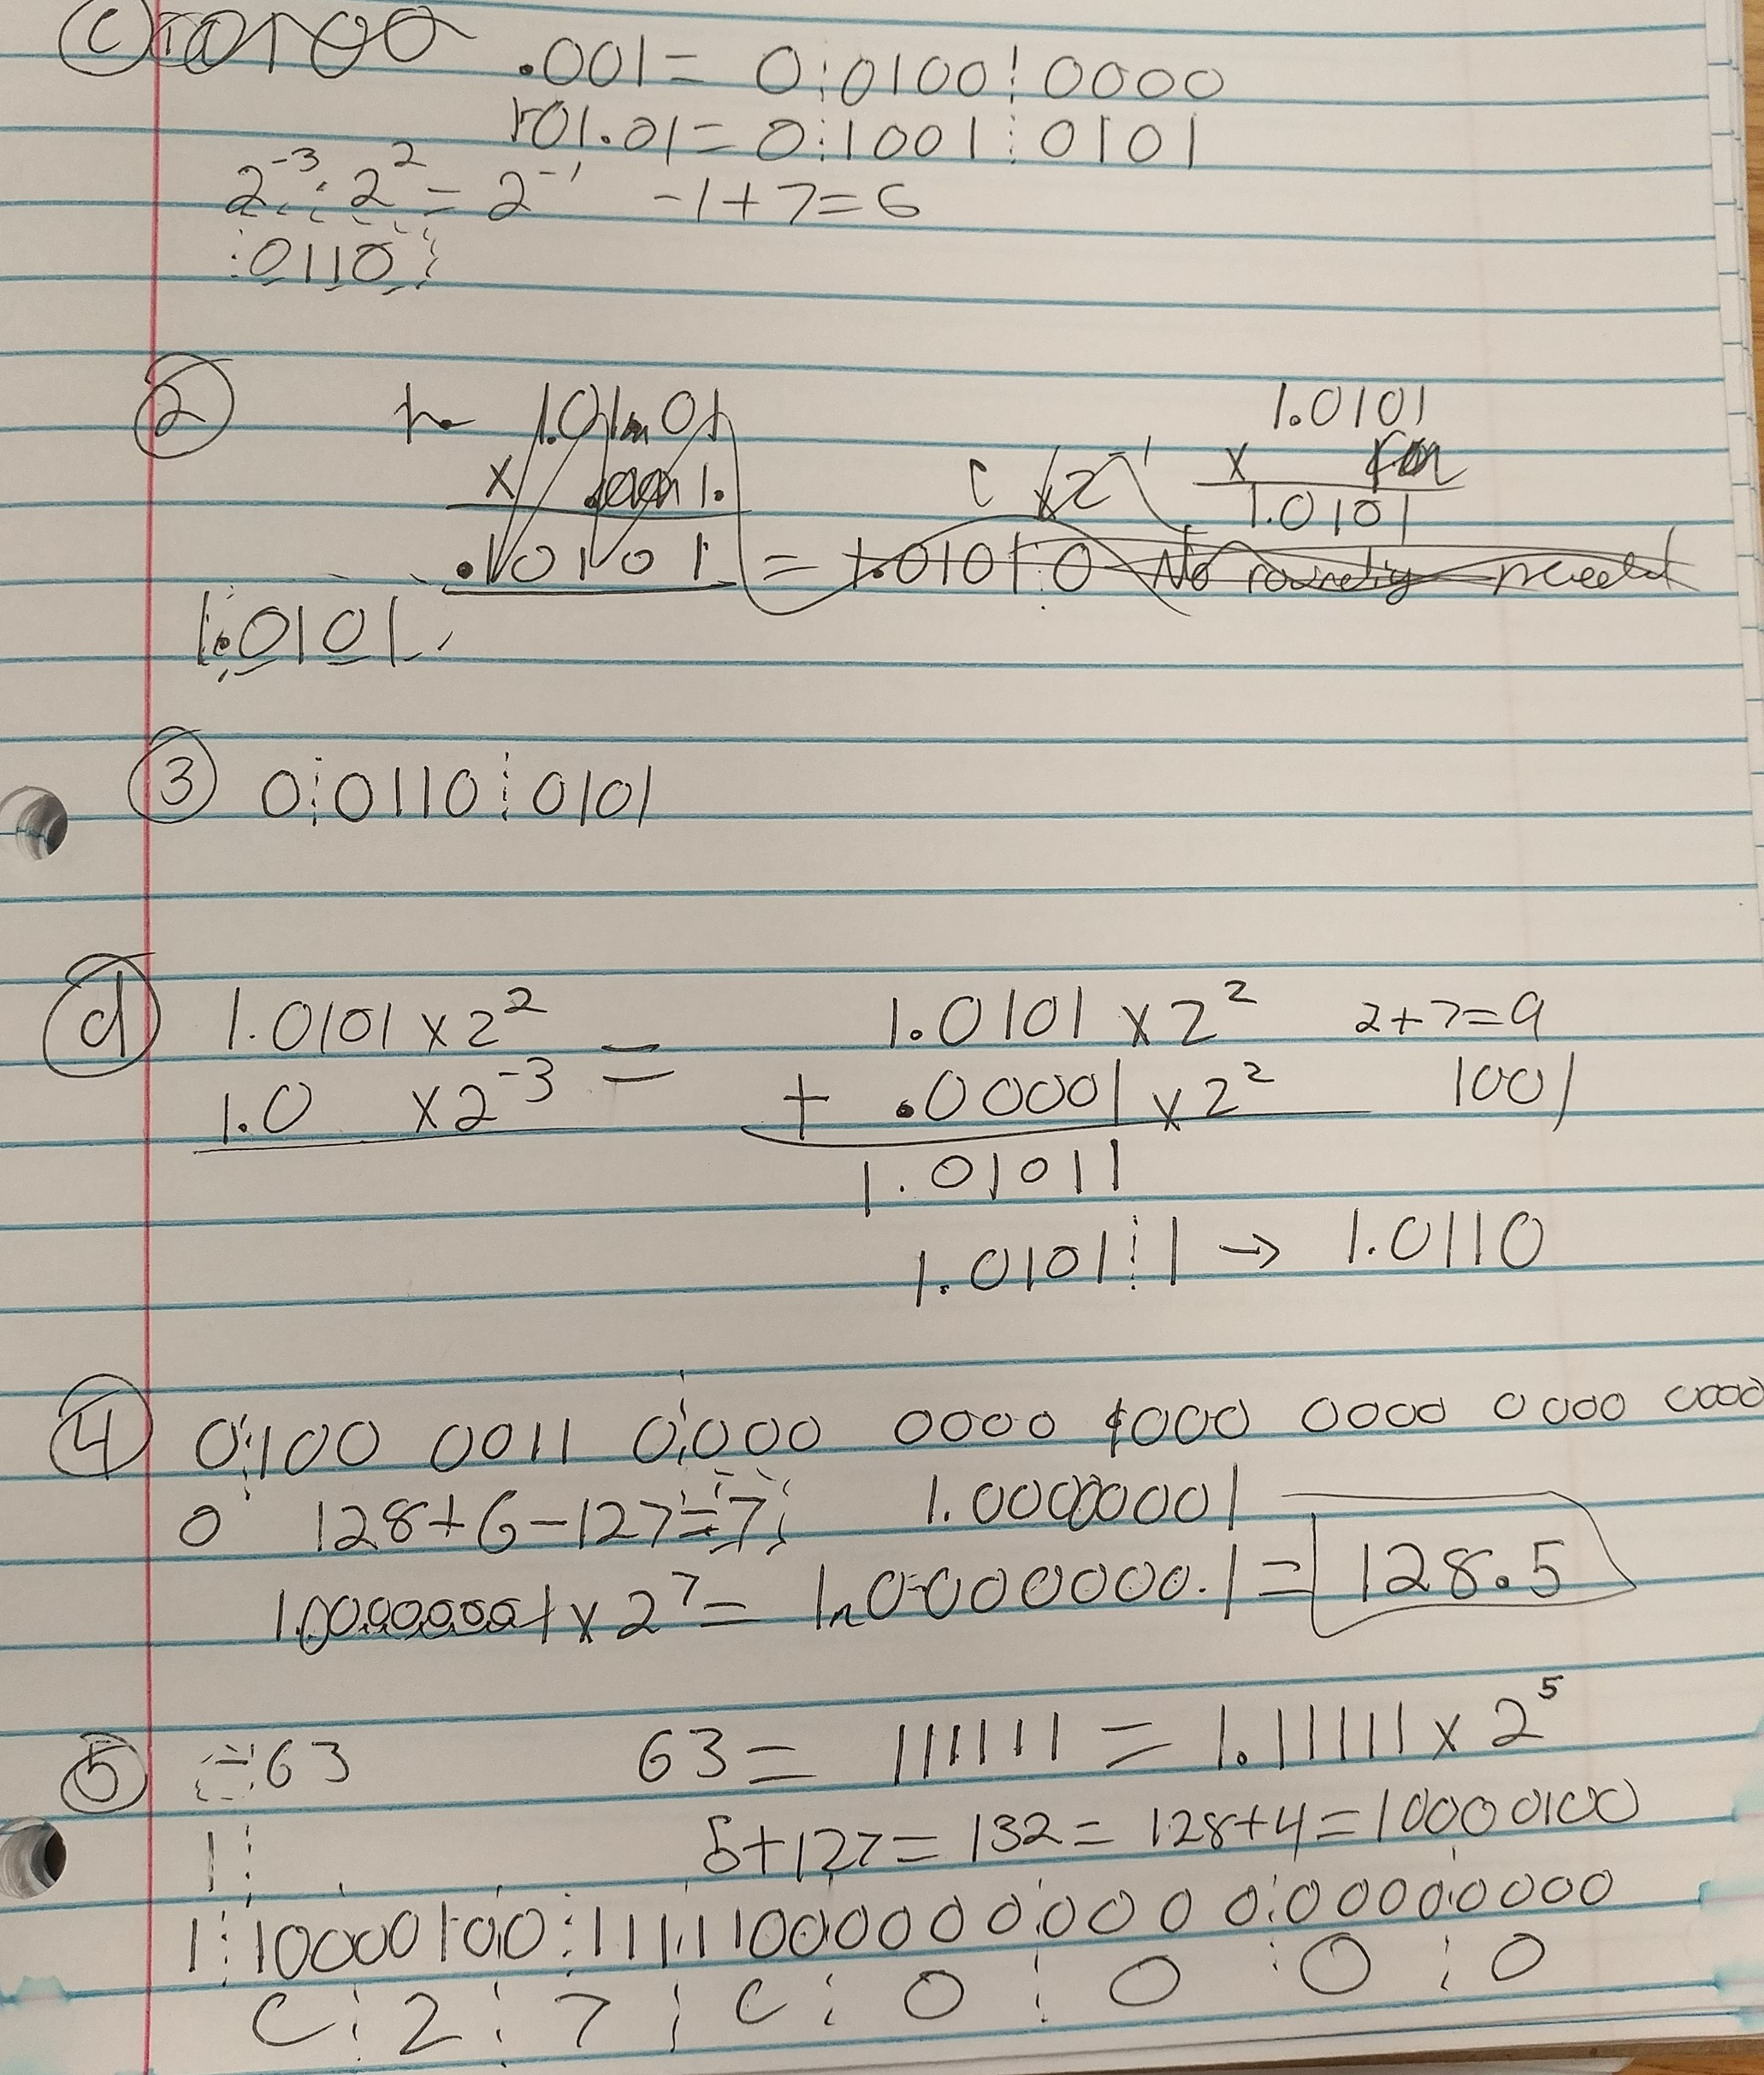 c) .001 = 0 0100 0000
101.01 = 0 1001 0101
2^-3 · 2^2 = 2^-1 -1+7=6
0110
2 1.0101
x
1.0101
x 2^-1
.10101 = 1.0101 0 No rounding need
1.0101
3 0 0110 0101
d 1.0101 x 2^2 = 1.0101 x 2^2 2+7=9
1.0 x 2^-3 + .00001 x 2^2 1001
1.01011
1.0101 1 → 1.0110
4 0 100 0011 0 000 0000 1000 0000 0000 0000
0 128+6-127=7 1.00000001
1.00000001 x 2^7 = 10000000.1 = 128.5
5 -63 63 = 111111 = 1.11111 x 2^5
1 5+127 = 132 = 128+4 = 10000100
1 10000100 11111000000000000000000
C 2 7 C 0 0 0 0